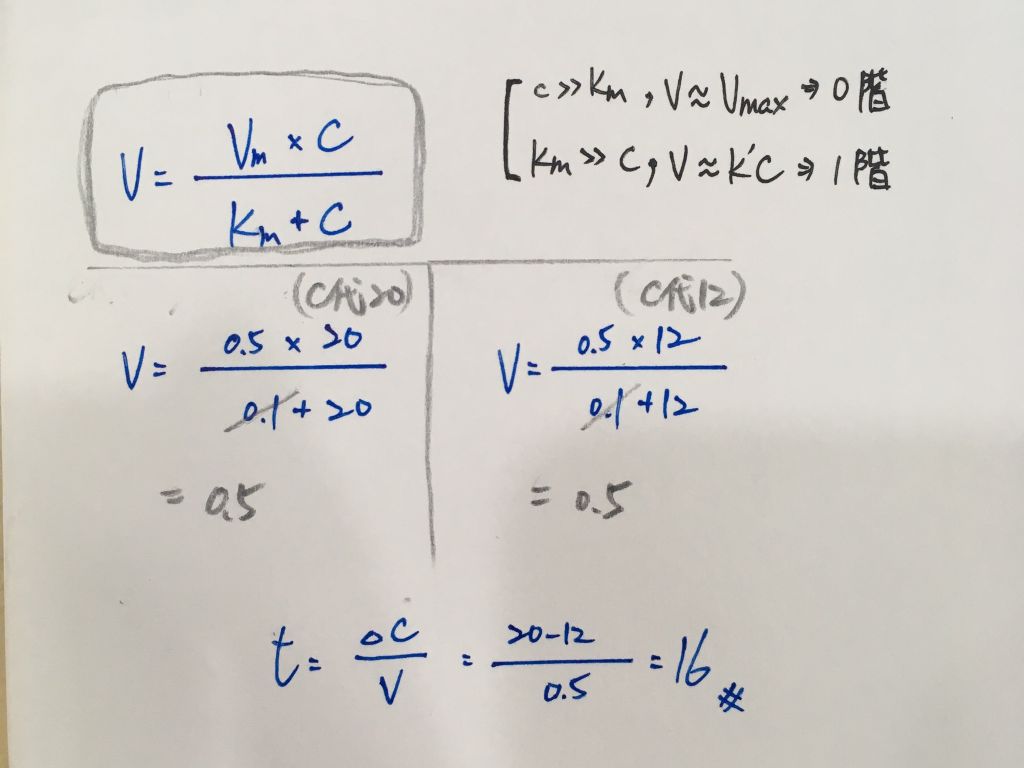 V = Vm × C / Km + C
[ C >> Km , V ≈ Vmax ⇒ 0階
Km >> C , V ≈ K'C ⇒ 1階
(C代20)
V = 0.5 × 20 / 0.1 + 20
= 0.5
(C代12)
V = 0.5 × 12 / 0.1 + 12
= 0.5
t = ΔC / V = 20-12 / 0.5 = 16 #